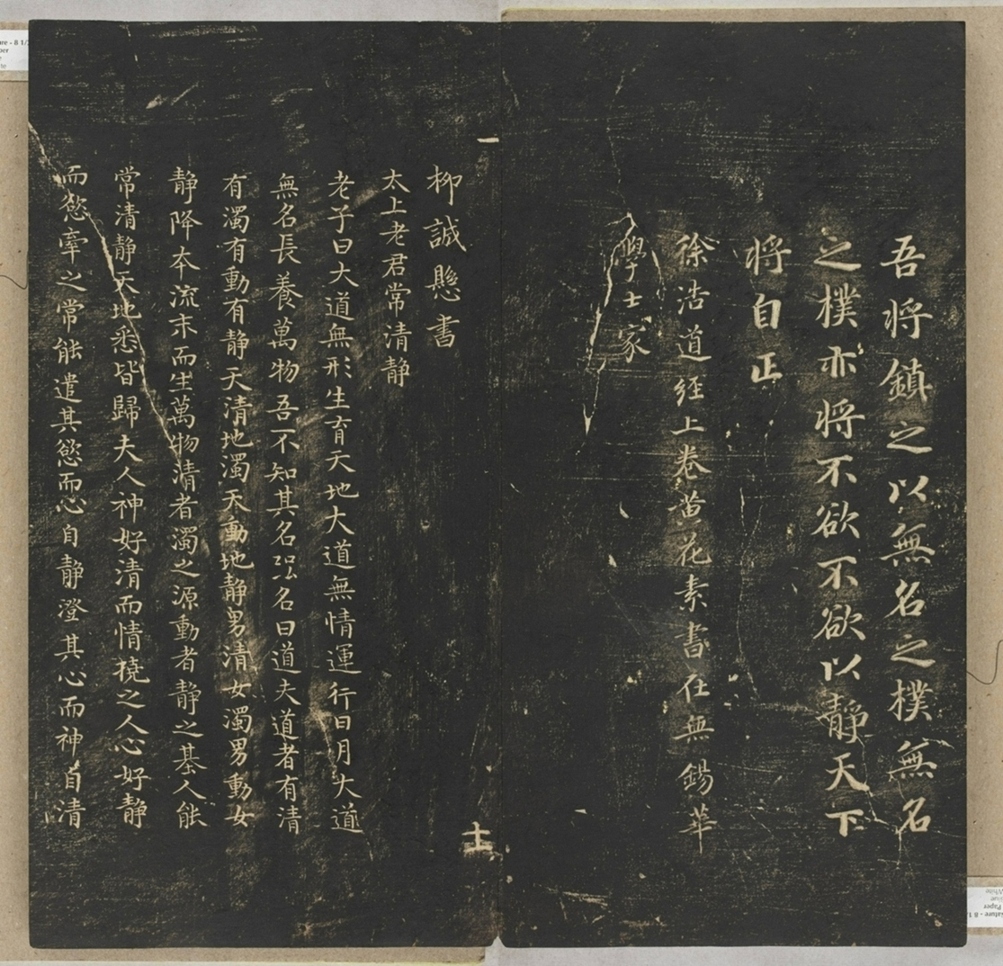 吾將鎮之以無名之樸無名
之樸亦將不欲不欲以靜天下
將自正
徐浩道經上卷黃花素書在無錫華
學士家
柳誠懸書
太上老君常清靜
老子曰大道無形生育天地大道無情運行日月大道
無名長養萬物吾不知其名强名曰道夫道者有清
有濁有動有靜天清地濁天動地靜男清女濁男動女
靜降本流末而生萬物清者濁之源動者靜之基人能
常清靜天地悉皆歸夫人神好清而情撓之人心好靜
而慾牽之常能遣其慾而心自靜澄其心而神自清
十二